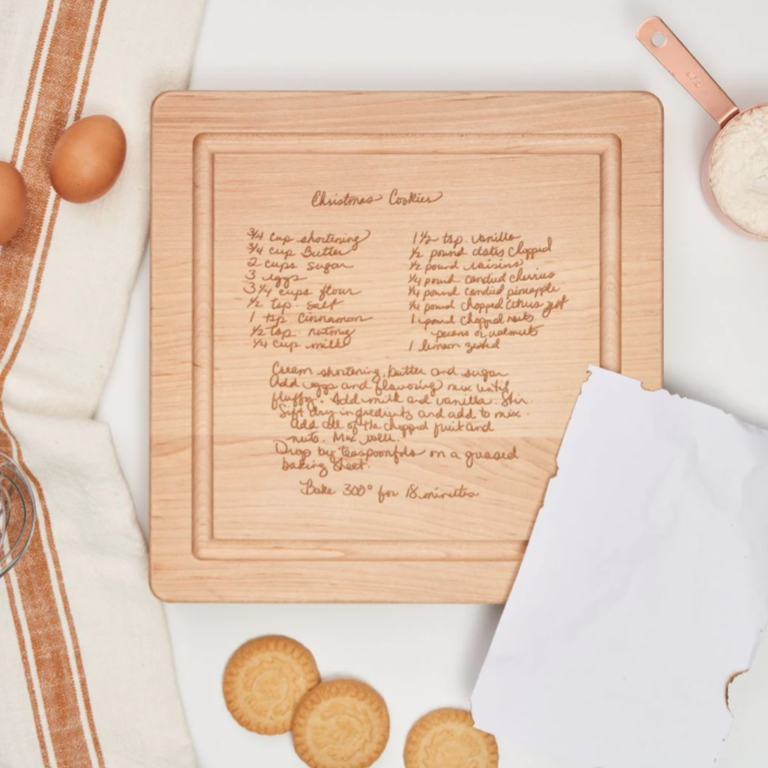 Christmas Cookies
3/4 cup shortening
3/4 cup Butter
2 cups sugar
3 eggs
3 1/4 cups flour
1/2 tsp. salt
1 tsp cinnamon
1/2 tsp. nutmeg
1/4 cup milk
1 1/2 tsp. vanilla
1/2 pound dates chopped
1/2 pound raisins
1/4 pound candied cherries
1/4 pound candied pineapple
1/4 pound chopped citrus zest
1 pound chopped nuts
pecans or walnuts
1 lemon zested
Cream shortening, butter and sugar
Add eggs and flavoring mix until
fluffy. Add milk and vanilla. Stir
Sift dry ingredients and add to mix.
Add all of the chopped fruit and
nuts. Mix well.
Drop by teaspoonfuls on a greased
baking sheet.
Bake 300° for 18 minutes